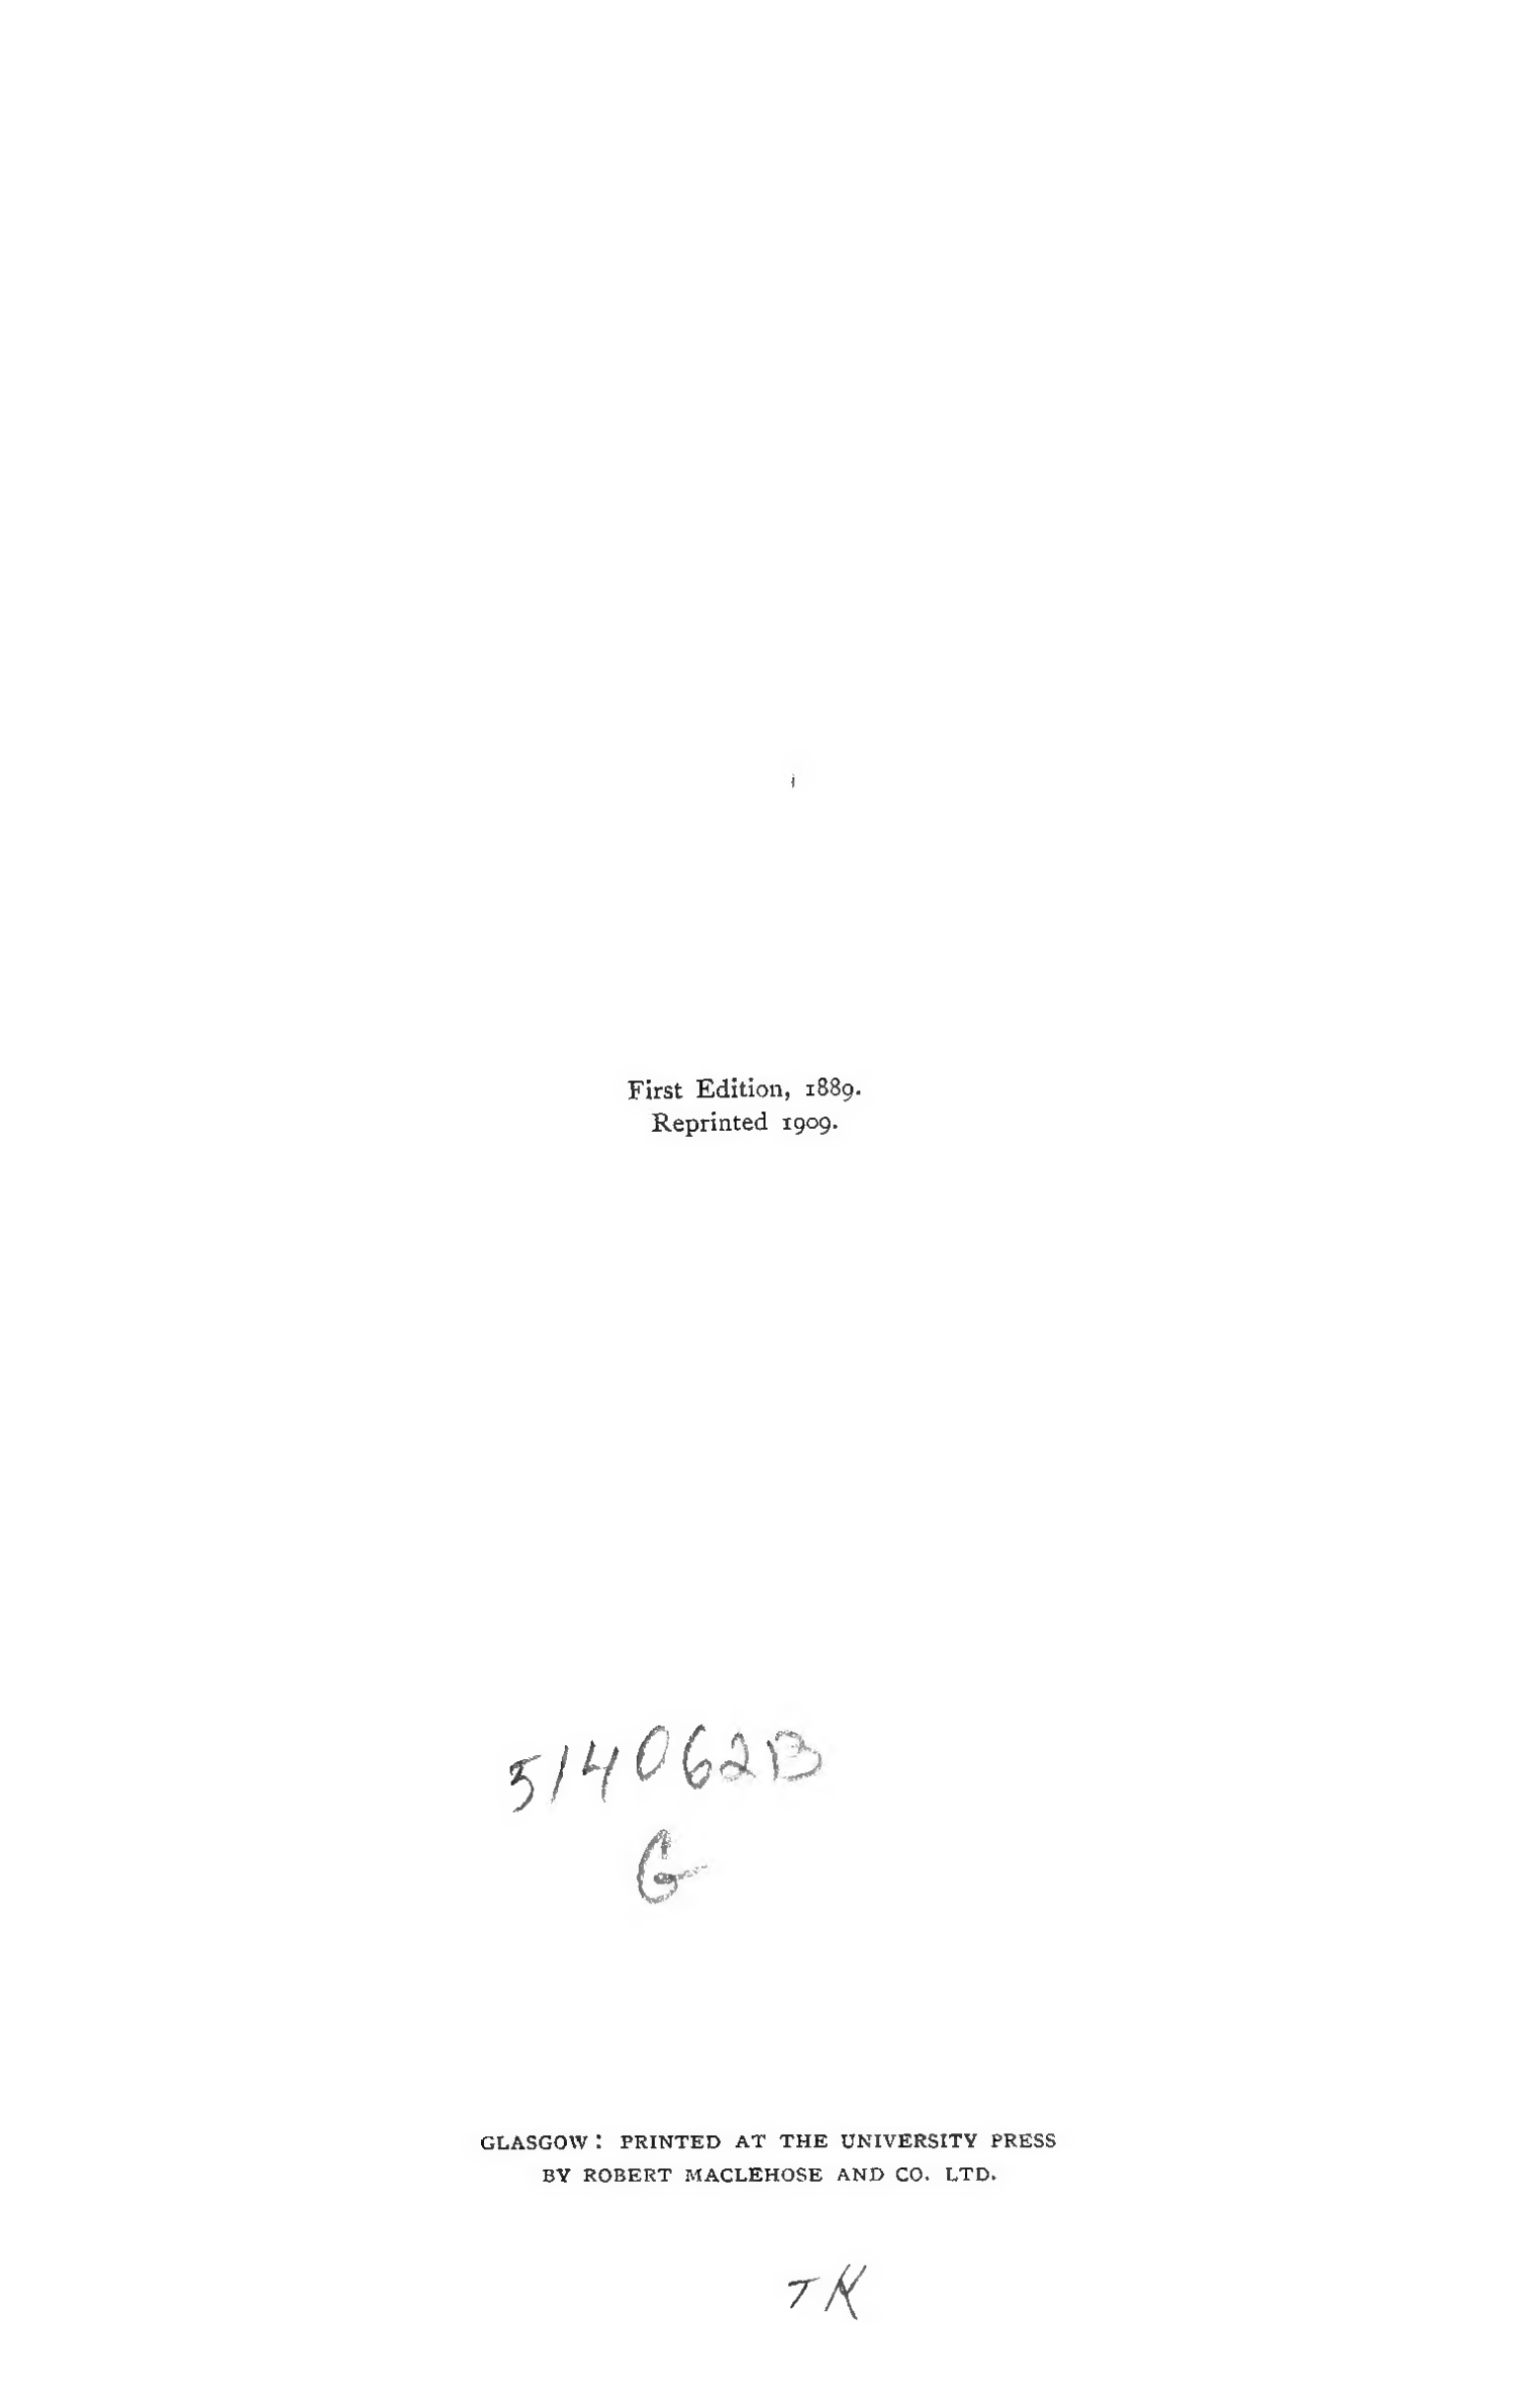 First Edition, 1889.
Reprinted 1909.
514062B
G
GLASGOW: PRINTED AT THE UNIVERSITY PRESS
BY ROBERT MACLEHOSE AND CO. LTD.